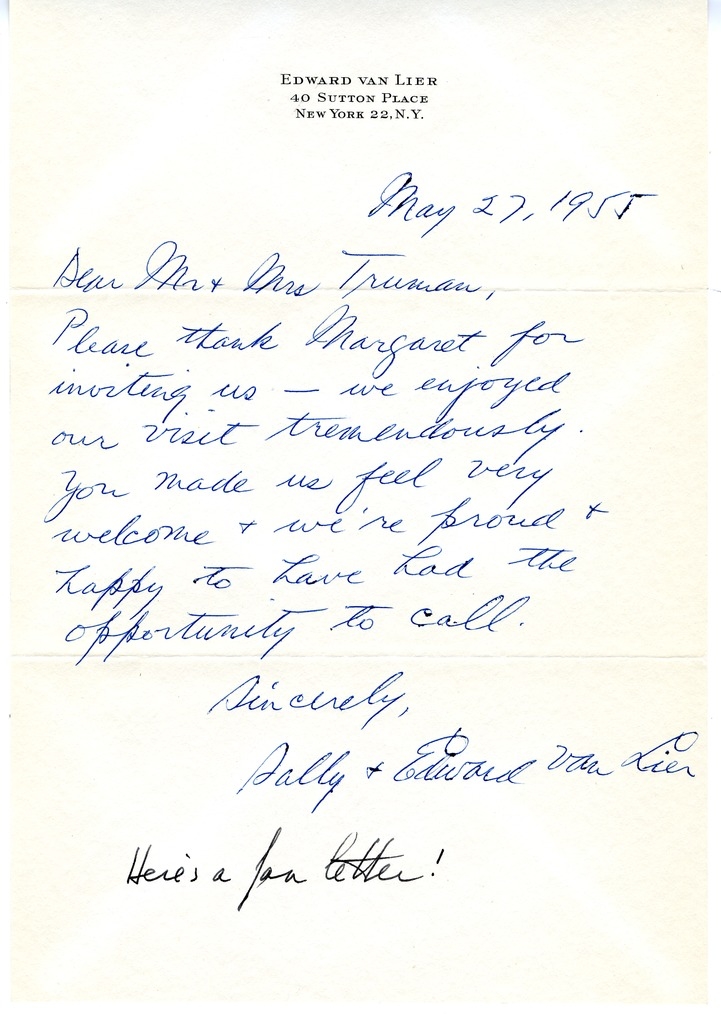 EDWARD VAN LIER
40 SUTTON PLACE
NEW YORK 22, N.Y.
May 27, 1955
Dear Mr + Mrs Truman,
Please thank Margaret for
inviting us — we enjoyed
our visit tremendously.
You made us feel very
welcome + we're proud +
happy to have had the
opportunity to call.
Sincerely,
Sally + Edward Van Lier
Here's a fan letter!